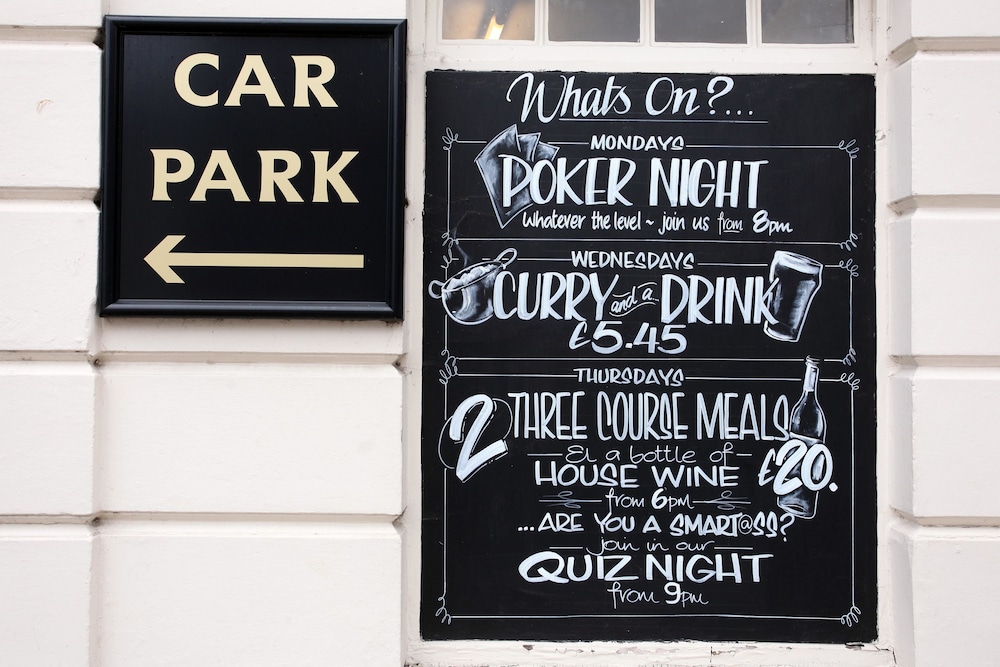 CAR
PARK
Whats On?...
MONDAYS
POKER NIGHT
Whatever the level ~ join us from 8pm
WEDNESDAYS
CURRY and a DRINK
£5.45
THURSDAYS
2 THREE COURSE MEALS
& a bottle of
HOUSE WINE £20.
from 6pm
...ARE YOU A SMART@SS?
join in our
QUIZ NIGHT
from 9pm